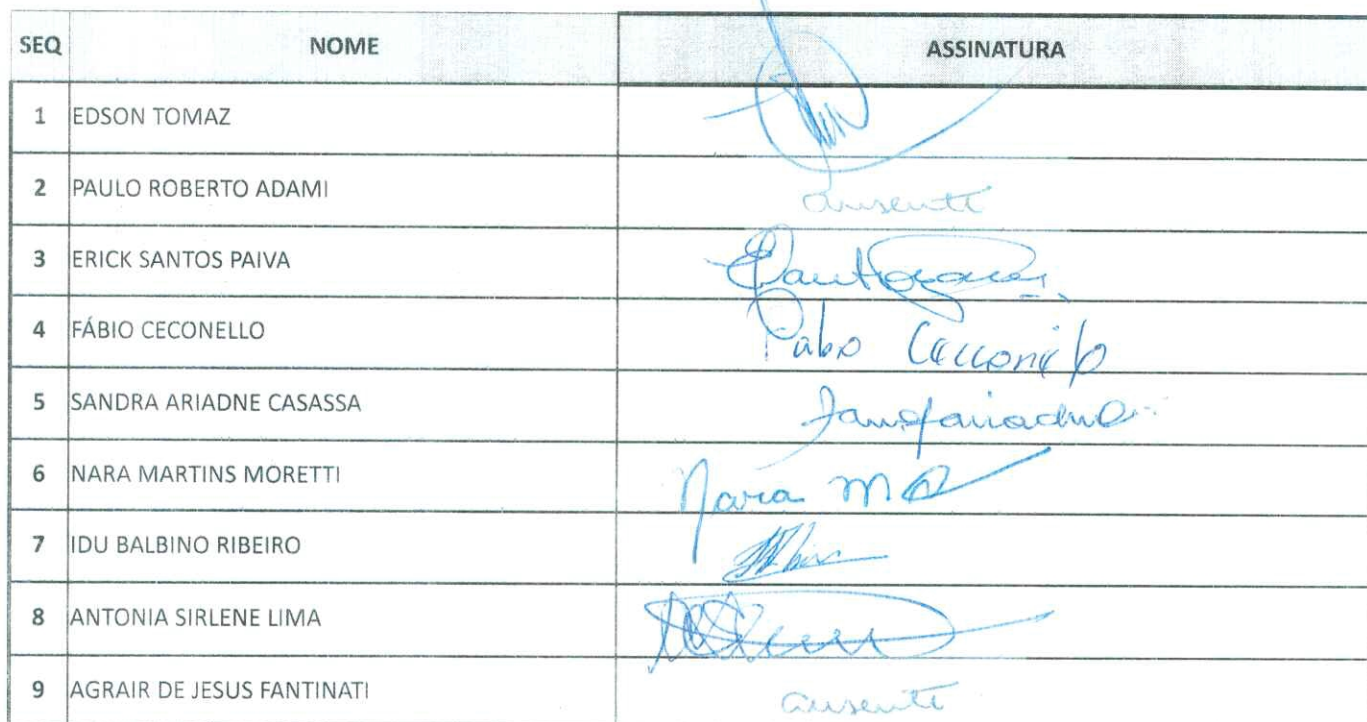 SEQ NOME ASSINATURA
1 EDSON TOMAZ
2 PAULO ROBERTO ADAMI ausente
3 ERICK SANTOS PAIVA
4 FÁBIO CECONELLO
5 SANDRA ARIADNE CASASSA
6 NARA MARTINS MORETTI Nara
7 IDU BALBINO RIBEIRO
8 ANTONIA SIRLENE LIMA
9 AGRAIR DE JESUS FANTINATI ausente